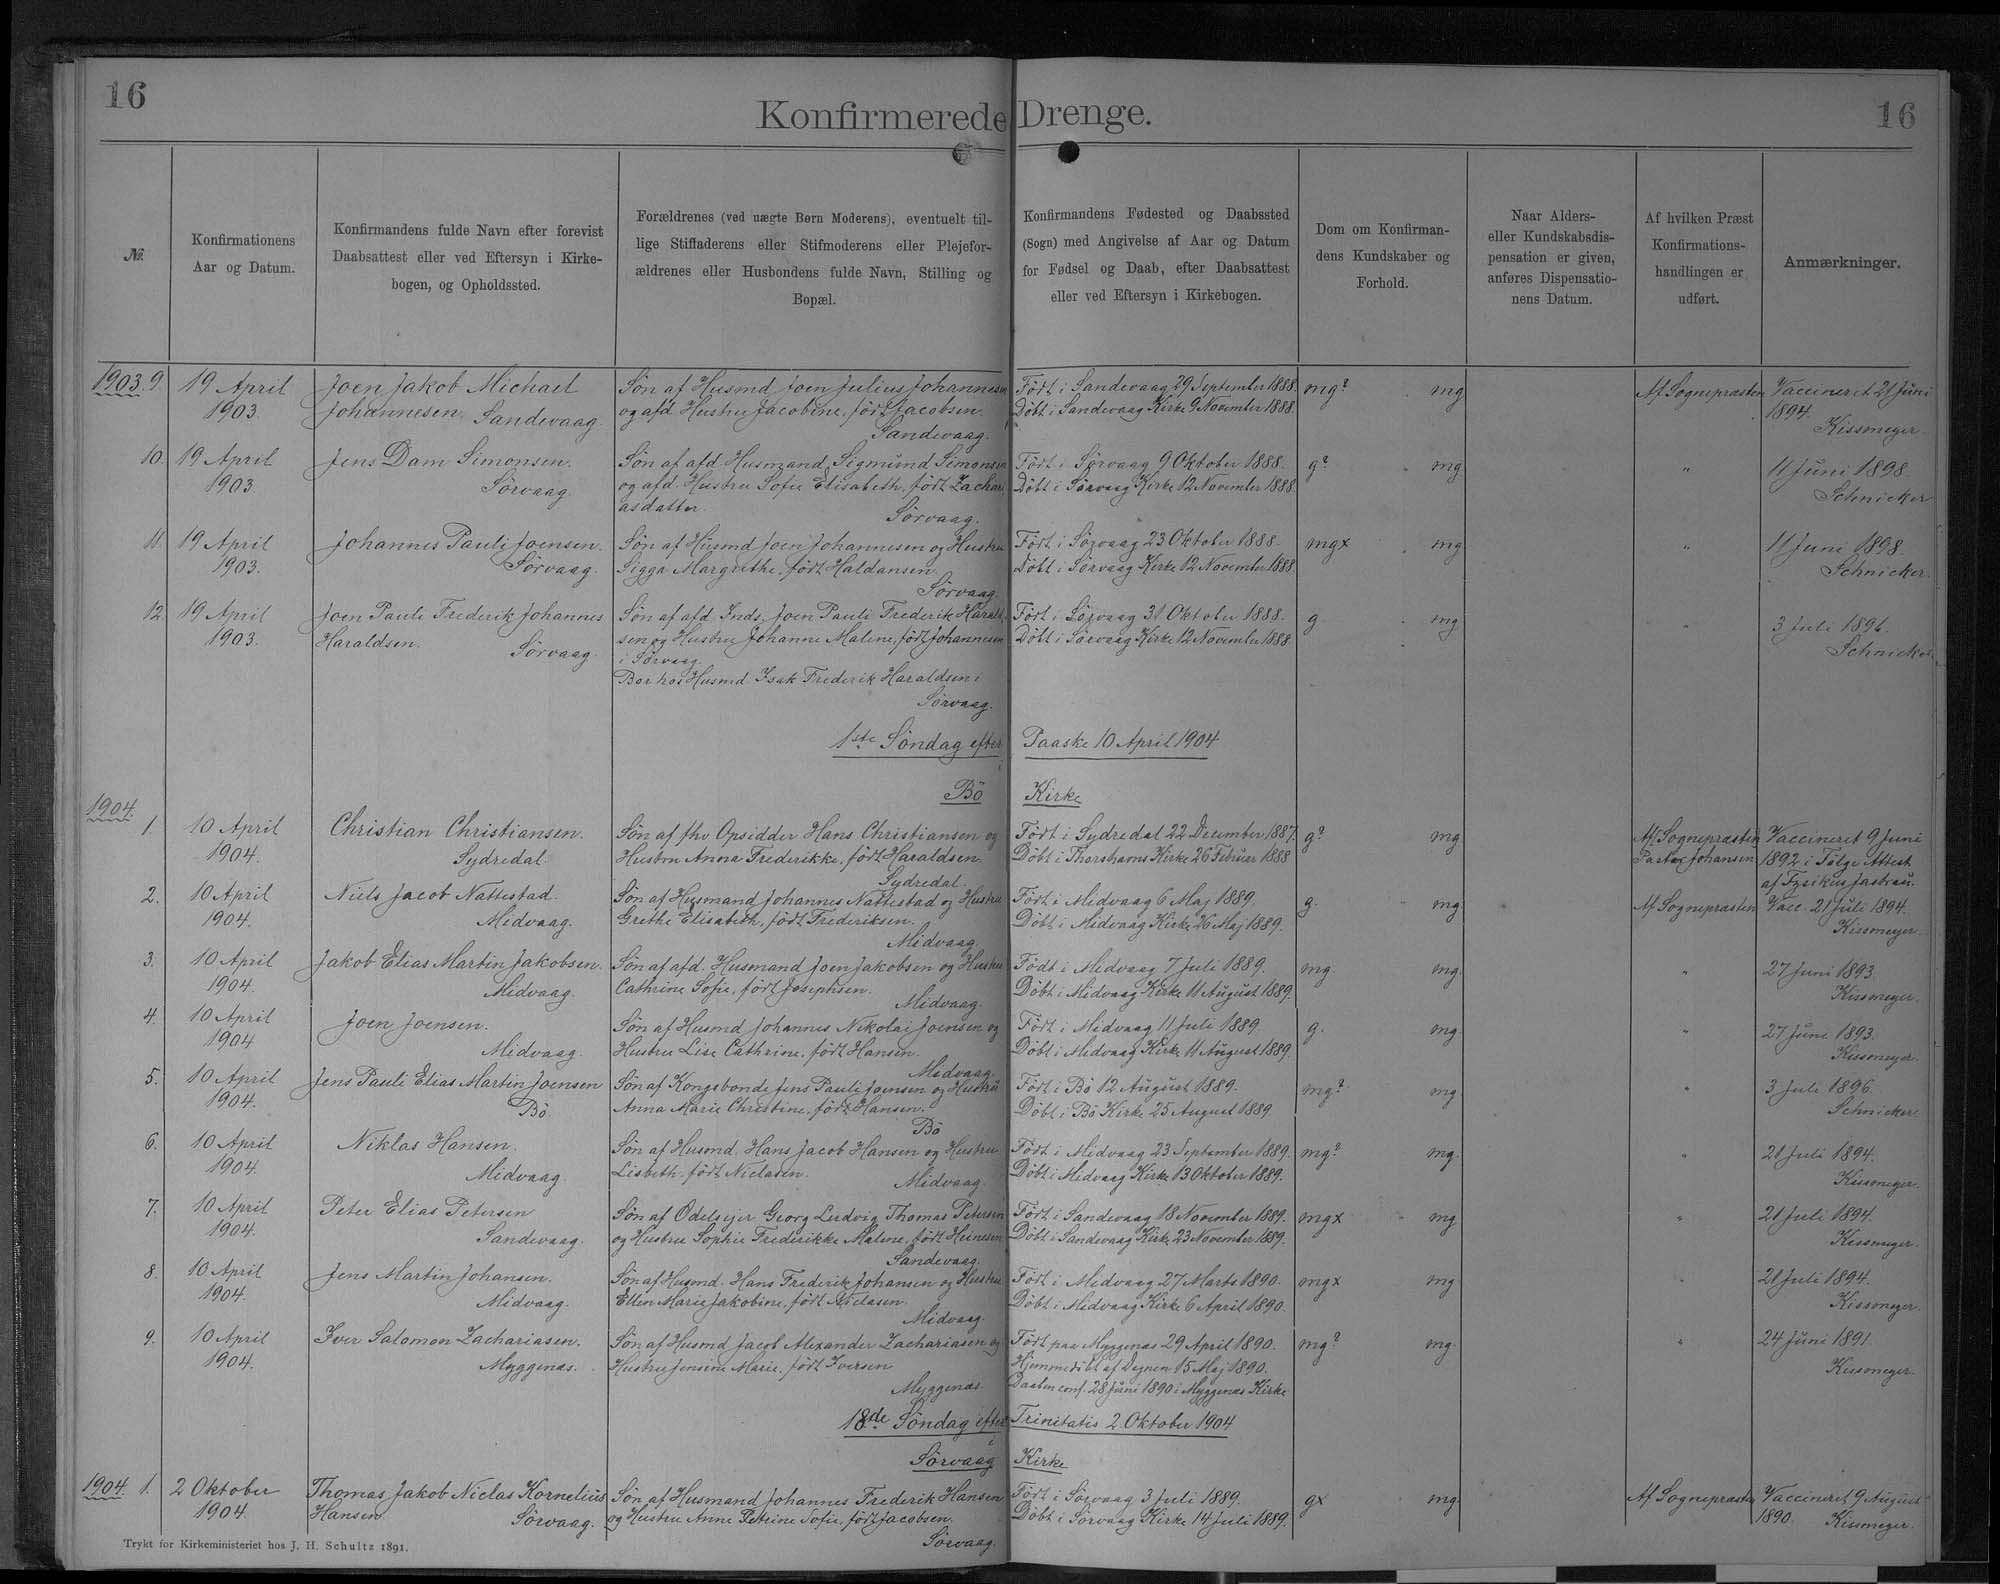 16
Konfirmerede Drenge.
16
№.
Konfirmationens
Aar og Datum.
Konfirmandens fulde Navn efter forevist
Daabsattest eller ved Eftersyn i Kirke-
bogen, og Opholdssted.
Forældrenes (ved uægte Børn Moderens), eventuelt til-
lige Stiffaderens eller Stifmoderens eller Plejefor-
ældrenes eller Husbondens fulde Navn, Stilling og
Bopæl.
Konfirmandens Fødested og Daabssted
(Sogn) med Angivelse af Aar og Datum
for Fødsel og Daab, efter Daabsattest
eller ved Eftersyn i Kirkebogen.
Dom om Konfirman-
dens Kundskaber og
Forhold.
Naar Alders-
eller Kundskabsdis-
pensation er given,
anføres Dispensatio-
nens Datum.
Af hvilken Præst
Konfirmations-
handlingen er
udført.
Anmærkninger.
1903. 9. 19 April
1903.
Joen Jakob Michael
Johannesen. Sandevaag.
Søn af Husmd Joen Julius Johannesen
og afd. Hustru Jacobine, født Jacobsen.
Sandevaag.
Født i Sandevaag 29 September 1888.
Döbt i Sandevaag Kirke 9 November 1888.
mg? mg
Af Sognepræsten
Vaccineret 21 Juni
1894.
Kissmeyer.
10. 19 April
1903.
Jens Dam Simonsen.
Sörvaag.
Søn af afd. Husmand Sigmund Simonsen
og afd. Hustru Sofie Elisabeth, født Zachari
asdatter.
Sörvaag.
Født i Sörvaag 9 Oktober 1888.
Döbt i Sörvaag Kirke 12 November 1888.
g? mg
"
11 Juni 1898.
Schnicker
11. 19 April
1903.
Johannes Pauli Joensen.
Sörvaag.
Søn af Husmd Joen Johannesen og Hustru
Sigga Margrethe, født Haldansen.
Sörvaag.
Født i Sörvaag 23 Oktober 1888.
Döbt i Sörvaag Kirke 12 November 1888.
mgx mg
"
11 Juni 1898.
Schnicker.
12. 19 April
1903.
Joen Pauli Frederik Johannes
Haraldsen. Sörvaag.
Søn af afd. Inds. Joen Pauli Frederik Harald
sen og Hustru Johanne Malene, født Johannesen
i Sörvaag.
Bor hos Husmd Isak Frederik Haraldsen i
Sörvaag.
Født i Sörvaag 31 Oktober 1888.
Döbt i Sörvaag Kirke 12 November 1888.
g mg
"
3 Juli 1896.
Schnicker
1ste Söndag efter Paaske 10 April 1904
i
Bö Kirke
1904.
1. 10 April
1904.
Christian Christiansen.
Sydredal.
Søn af fhv Opsidder Hans Christiansen og
Hustru Anna Frederikke, født Haraldsen
Sydredal.
Født i Sydredal 22 December 1887.
Döbt i Thorshavns Kirke 26 Februar 1888
g? mg
Af Sognepræsten
Pastor Johansen
Vaccineret 9 Juni
1892 i Følge Attest
af Fysikus Jastrau.
2. 10 April
1904.
Niels Jacob Nattestad.
Midvaag.
Søn af Husmand Johannes Nattestad og Hustru
Grethe Elisabeth, født Frederiksen.
Midvaag.
Født i Midvaag 6 Maj 1889.
Döbt i Midvaag Kirke 26 Maj 1889.
g. mg
Af Sognepræsten
Vacc. 21 Juli 1894.
Kissmeyer.
3. 10 April
1904.
Jakob Elias Martin Jakobsen.
Midvaag.
Søn af afd. Husmand Joen Jakobsen og Hustru
Cathrine Sofie, født Josephsen.
Midvaag.
Født i Midvaag 7 Juli 1889.
Döbt i Midvaag Kirke 11 August 1889.
mg. mg.
"
27 Juni 1893.
Kissmeyer.
4. 10 April
1904
Joen Joensen.
Midvaag.
Søn af Husmd Johannes Nikolai Joensen og
Hustru Lise Cathrine, født Hansen.
Midvaag.
Født i Midvaag 11 Juli 1889.
Döbt i Midvaag Kirke 11 August 1889.
g. mg.
"
27 Juni 1893.
Kissmeyer.
5. 10 April
1904.
Jens Pauli Elias Martin Joensen
Bö.
Søn af Kongsbonde Jens Pauli Joensen og Hustru
Anna Marie Christine, født Hansen.
Bö
Født i Bö 12 August 1889.
Döbt i Bö Kirke 25 August 1889.
mg? mg.
"
3 Juli 1896.
Schnicker.
6. 10 April
1904.
Niklas Hansen.
Midvaag.
Søn af Husmd. Hans Jacob Hansen og Hustru
Lisbeth. født Niclasen.
Midvaag.
Født i Midvaag 23 September 1889.
Döbt i Midvaag Kirke 13 Oktober 1889.
mg? mg.
"
21 Juli 1894.
Kissmeyer.
7. 10 April
1904.
Peter Elias Petersen
Sandevaag.
Søn af Odelsejer Georg Ludvig Thomas Petersen
og Hustru Sophie Frederikke Malene, født Heinesen
Sandevaag.
Født i Sandevaag 18 November 1889.
Döbt i Sandevaag Kirke 23 November 1889.
mgx mg
"
21 Juli 1894.
Kissmeyer.
8. 10 April
1904.
Jens Martin Johansen.
Midvaag.
Søn af Husmd. Hans Frederik Johansen og Hustru
Ellen Marie Jakobine, født Niclasen.
Midvaag.
Født i Midvaag 27 Marts 1890.
Döbt i Midvaag Kirke 6 April 1890.
mgx mg.
"
21 Juli 1894.
Kissmeyer.
9. 10 April
1904.
Iver Salomon Zachariasen.
Myggenæs.
Søn af Husmd Jacob Alexander Zachariasen og
Hustru Jensine Marie, født Iversen
Myggenæs.
Født paa Myggenæs 29 April 1890.
Hjemmedöbt af Degnen 15 Maj 1890.
Daaben conf. 28 Juni 1890 i Myggenæs Kirke
mg? mg.
"
24 Juni 1891.
Kissmeyer.
18de Söndag efter Trinitatis 2 Oktober 1904
i
Sörvaag Kirke
1904. 1. 2 Oktober
1904.
Thomas Jakob Niclas Kornelius
Hansen. Sörvaag.
Søn af Husmand Johannes Frederik Hansen
og Hustru Anne Petrine Sofie, født Jacobsen.
Sörvaag.
Født i Sörvaag 3 Juli 1889.
Döbt i Sörvaag Kirke 14 Juli 1889.
gx mg.
Af Sognepræsten
Vaccineret 9 August
1890. Kissmeyer.
Trykt for Kirkeministeriet hos J. H. Schultz 1891.